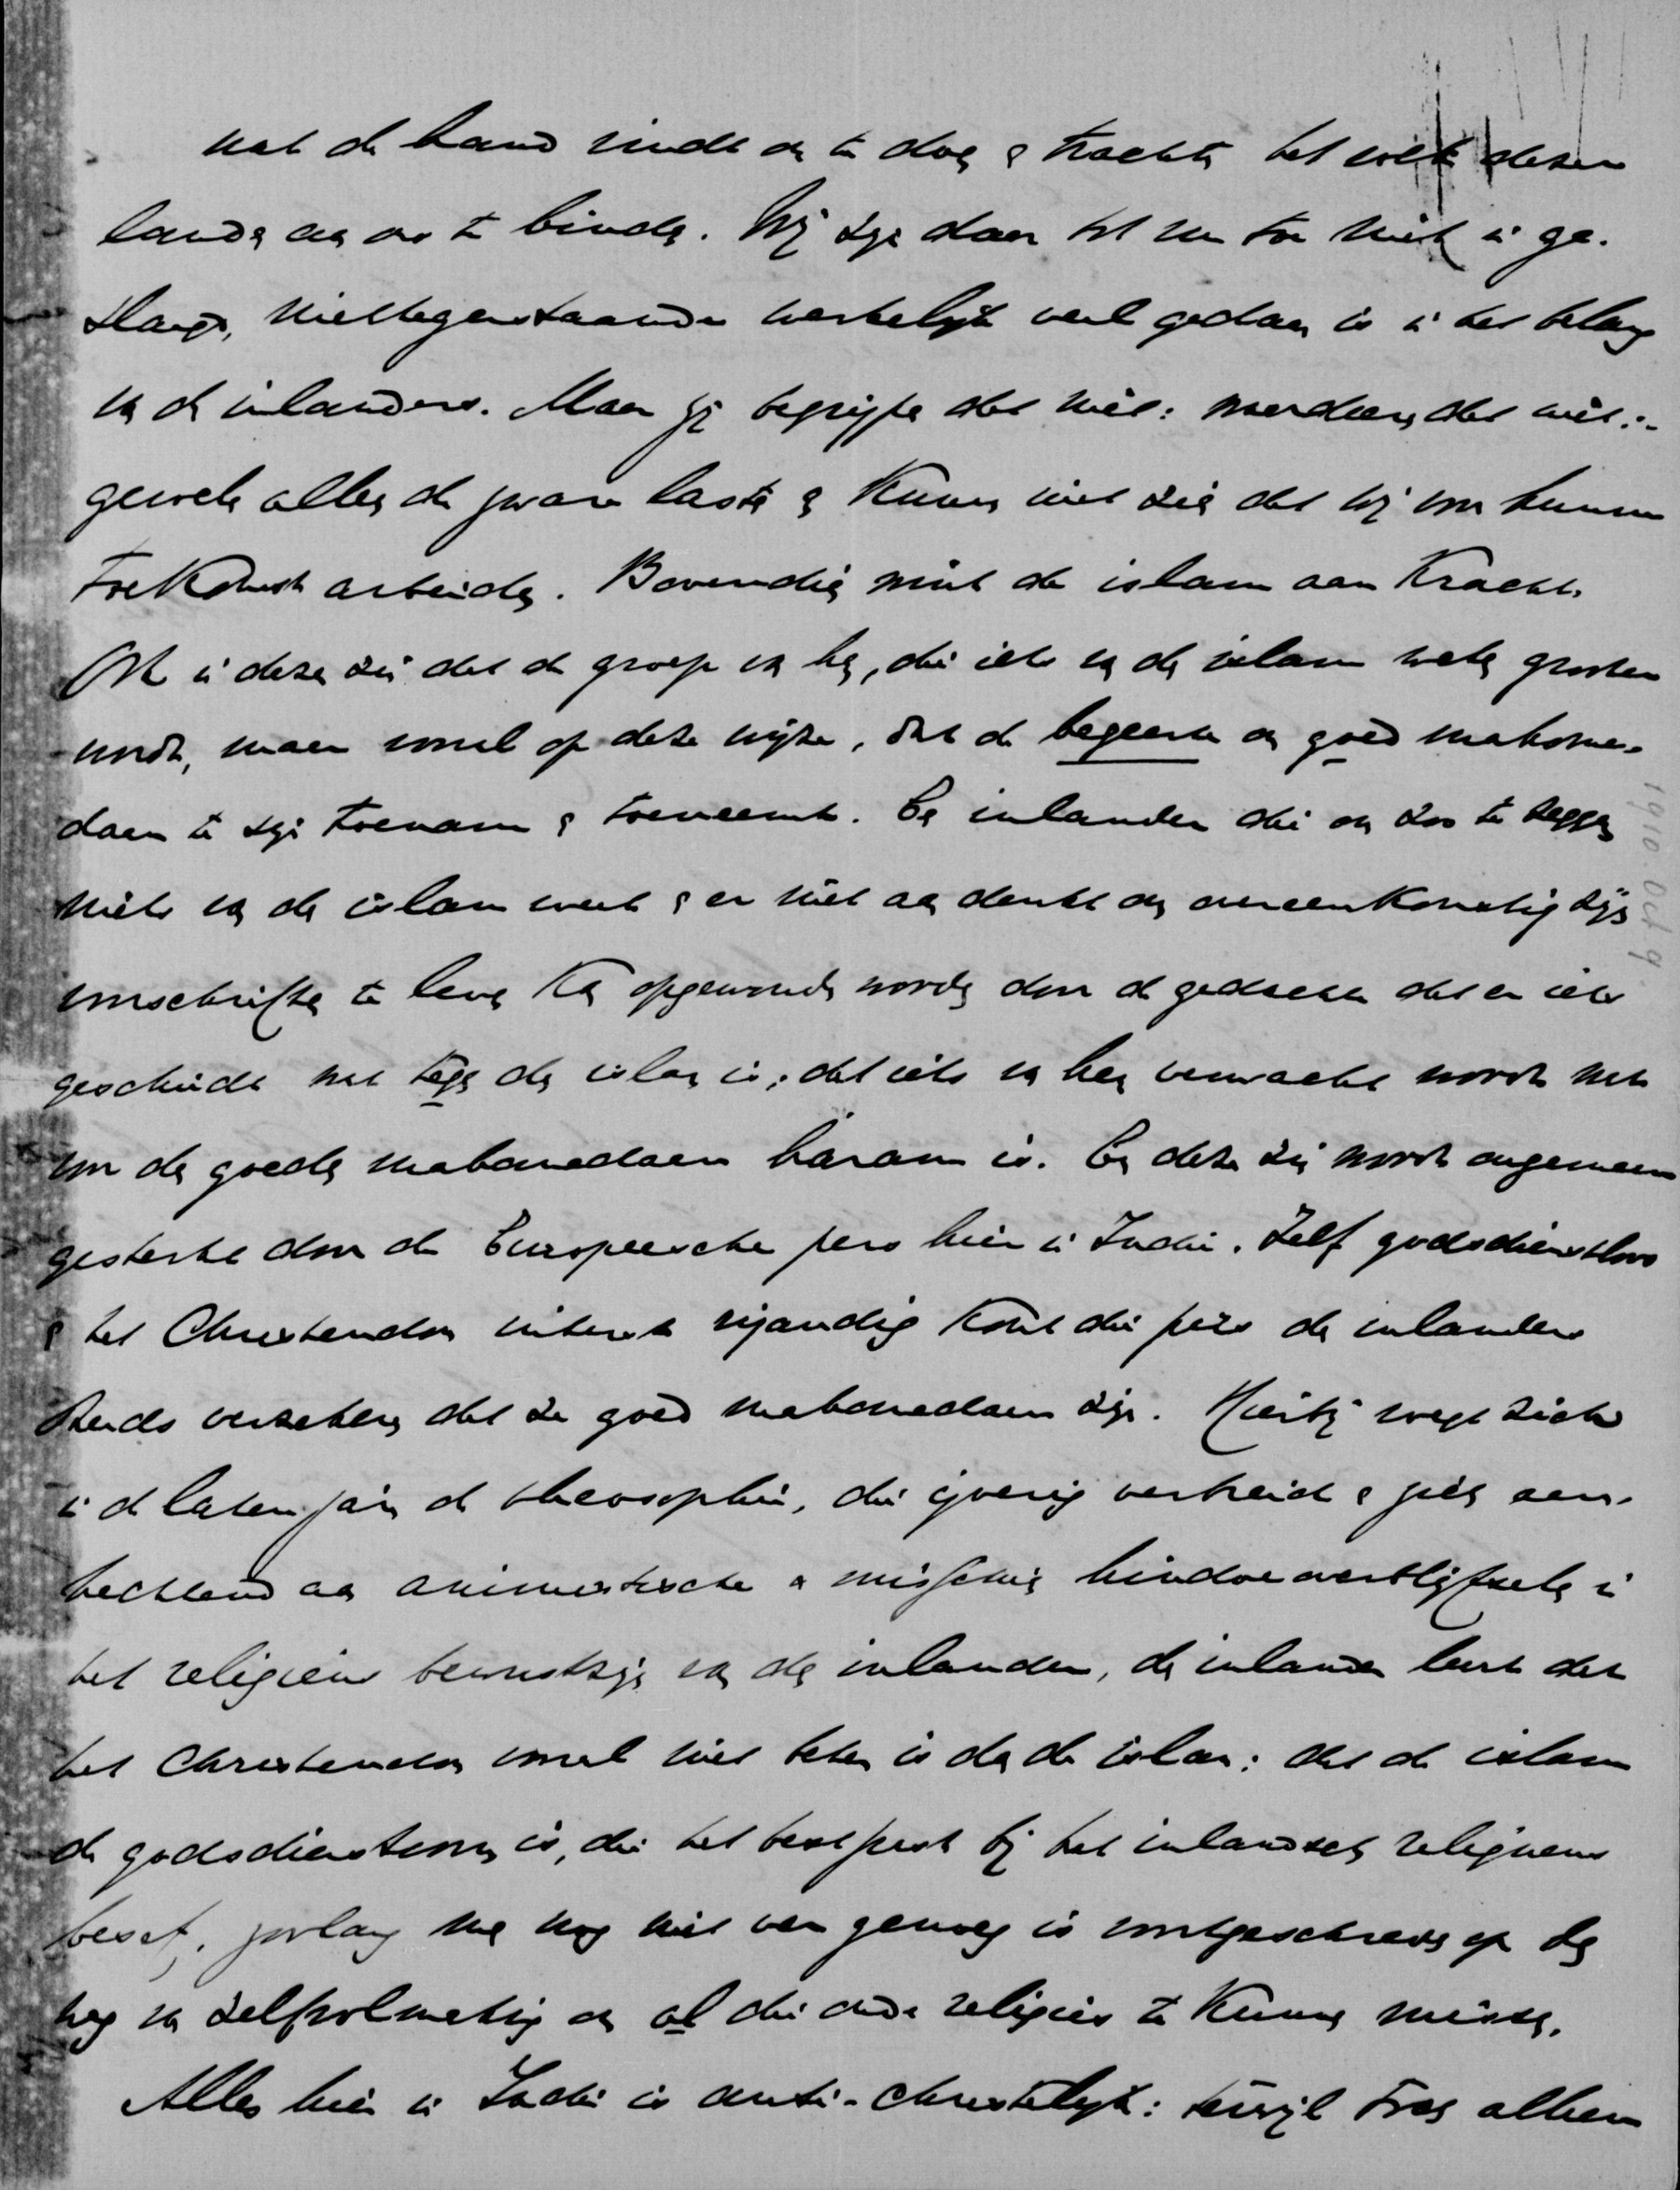 wat de hand vindt om te doen & trachten het volk dezer
landen aan ons te binden. Wij zijn daar tot nu toe niet in ge-
slaagd, niettegenstaande werkelijk veel gedaan is in het belang
van de inlanders. Maar zij begrijpen dat niet: waardeeren dat niet:-
gevoelen alleen de zware lasten & kunnen niet zien dat wij voor hunne
toekomst arbeiden. Bovendien wint de islam aan kracht.
Ook in dezen zin dat de groep van hen, die iets van den islam weten grooter
wordt, maar vooral op deze wijze, dat de begeerte om goed mahome-
daan te zijn toenam & toeneemt. Een inlander die om zoo te zeggen
niets van den islam weet & er niet aan denkt om overeenkomstig zijn
voorschriften te leven kan opgewonden worden door de gedachte dat er iets
geschiedt wat tegen den islam is; dat iets van hem verwacht wordt wat
voor den goeden mahomedaan haram is. En deze zin wordt ongemeen
gesterkt door de Europeesche pers hier in Indië. Zelf godsdienstloos
& het Christendom uiterst vijandig komt die pers den inlanders
steeds verzekeren dat ze goed mahomedaan zijn. Hierbij voegt zich
in de laatste jaren de theosophie, die ijverig verbreid & zich aan-
hechtend aan animistische & misschien hindoeoverblijfselen in
het religieus bewustzijn van den inlander, den inlander leert dat
het Christendom vooral niet beter is dan de islam: dat de islam
de godsdienstvorm is, die het best past bij het inlandsch religieus
besef, zoolang men nog niet ver genoeg is voortgeschreden op den
weg van zelfvolmaking om al die oude religies te kunnen missen.
Alles hier in Indië is anti-christelijk: terwijl toch alleen
1910 Oct 9